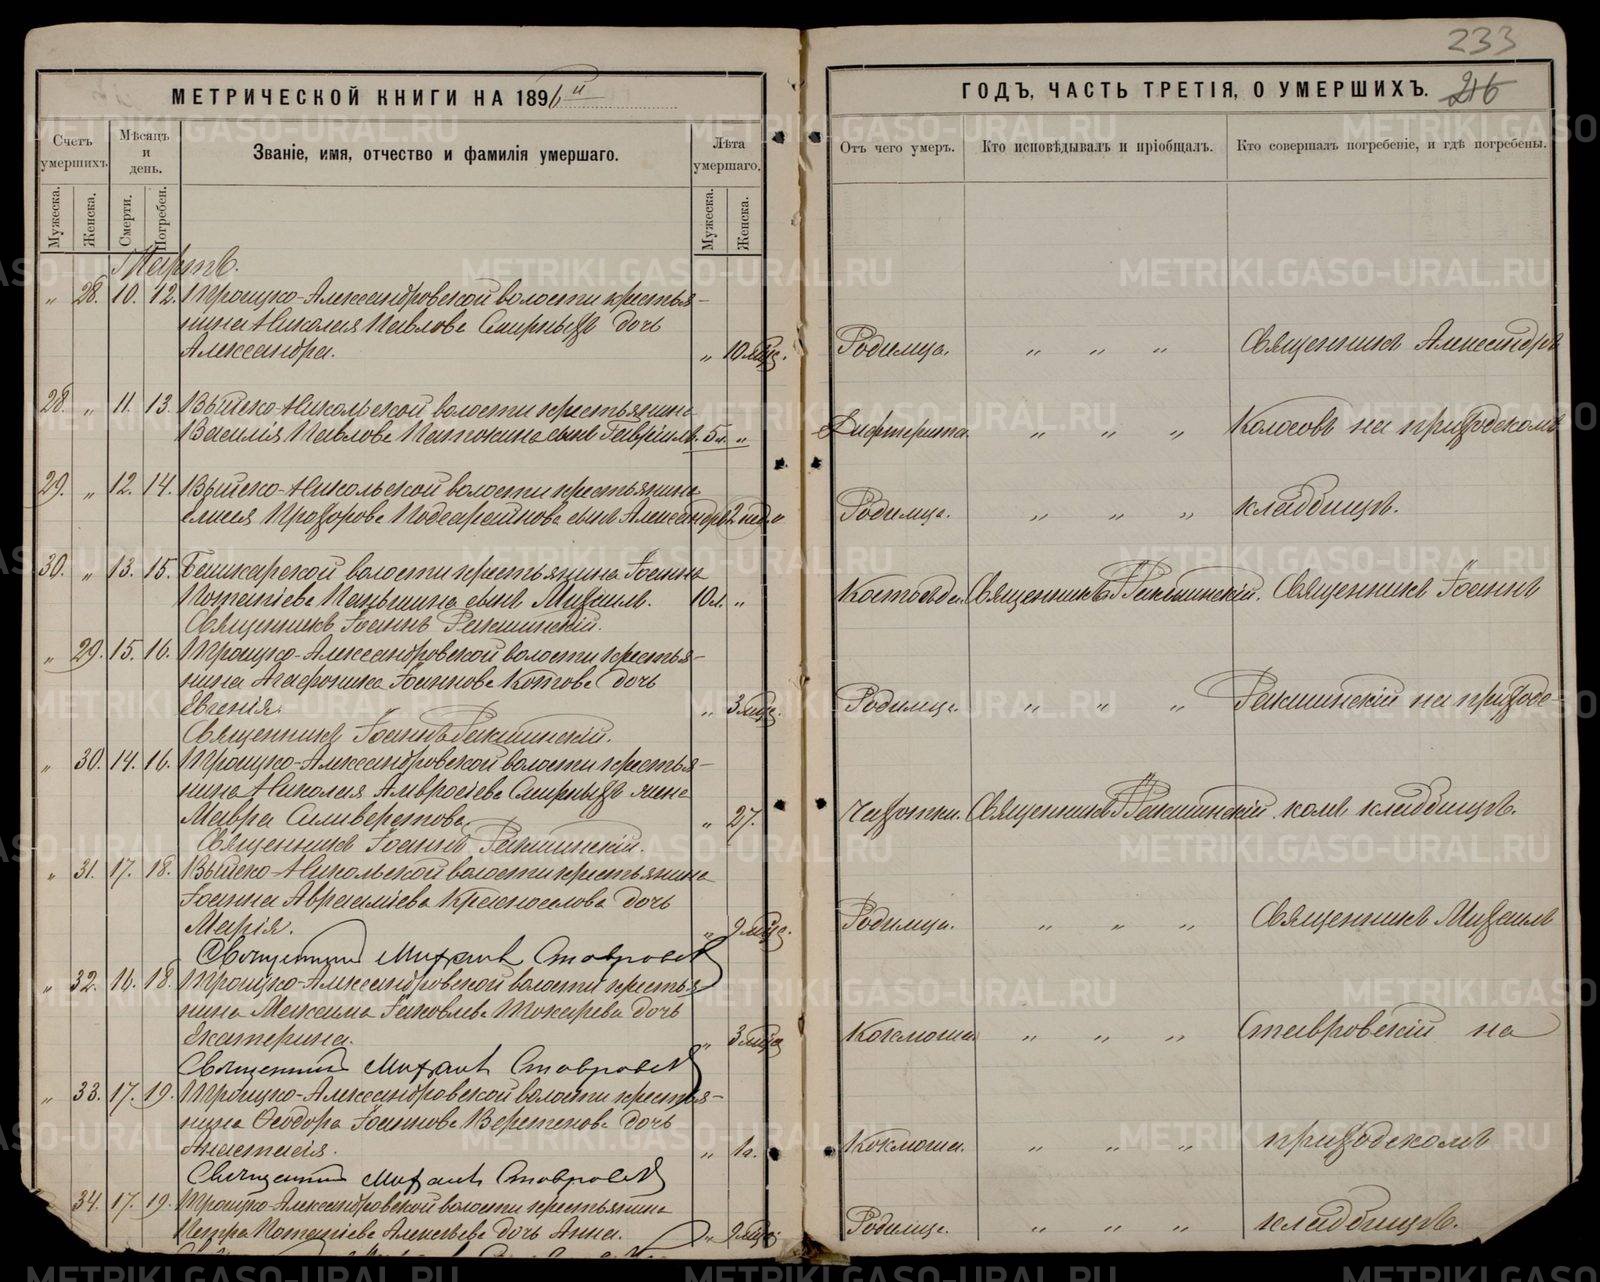 233
МЕТРИЧЕСКОЙ КНИГИ НА 1896й
ГОДЪ, ЧАСТЬ ТРЕТІЯ, О УМЕРШИХЪ.
Счетъ умершихъ.
Мѣсяцъ и день.
Званіе, имя, отчество и фамилія умершаго.
Лѣта умершаго.
Отъ чего умеръ.
Кто исповѣдывалъ и пріобщалъ.
Кто совершалъ погребеніе, и гдѣ погребены.
Мужеска.
Женска.
Смерти.
Погребен.
Мужеска.
Женска.
Мартъ.
„ 28. 10. 12. Троицко-Александровской волости крестья-
нина Николая Павлова Смирныхъ дочь
Александра. „ 10 мѣс. Родимца. „ „ „ Священникъ Александръ
28. „ 11. 13. Выйско-Никольской волости крестьянина
Василія Павлова Патокина сынъ Гавріилъ. 5 л. „ Дифтерита. „ „ „ Колосовъ на приходскомъ
29. „ 12. 14. Выйско-Никольской волости крестьянина
Елисея Прохорова сынъ Александръ 2 нед. „ Родимца. „ „ „ кладбищѣ.
30. „ 13. 15. Башкарской волости крестьянина Іоанна
Потапіева Паньшина сынъ Михаилъ. 10 л. „ Костоѣда. Священникъ Ракшинскій. Священникъ Іоаннъ
Священникъ Іоаннъ Ракшинскій.
„ 29. 15. 16. Троицко-Александровской волости крестья-
нина Агафоника Іоаннова Котова дочь
Евгенія. „ 3 мѣс. Родимца. „ „ „ Ракшинскій на приход-
Священникъ Іоаннъ Ракшинскій.
„ 30. 14. 16. Троицко-Александровской волости крестья-
нина Николая Амвросіева Смирныхъ жена
Мавра Силиверстова. „ 27. Чахотки. Священникъ Ракшинскій. комъ кладбищѣ.
Священникъ Іоаннъ Ракшинскій.
„ 31. 17. 18. Выйско-Никольской волости крестьянина
Іоанна Авраамiева Красноселова дочь
Марія. „ 9 мѣс. Родимца. „ „ „ Священникъ Михаилъ
Священникъ Михаилъ Ставровскій
„ 32. 16. 18. Троицко-Александровской волости крестья-
нина Максима Іаковлева Токарева дочь
Екатерина. „ 3 мѣс. Коклюша. „ „ „ Ставровскій на
Священникъ Михаилъ Ставровскій
„ 33. 17. 19. Троицко-Александровской волости крестья-
нина Ѳеодора Іоаннова Веретенова дочь
Анастасія. „ 1 г. Коклюша. „ „ „ приходскомъ
Священникъ Михаилъ Ставровскій
34. 17. 19. Троицко-Александровской волости крестьянина
Петра Потапіева Алексѣева дочь Анна. „ 9 мѣс. Родимца. „ „ „ кладбищѣ.
METRIKI.GASO-URAL.RU